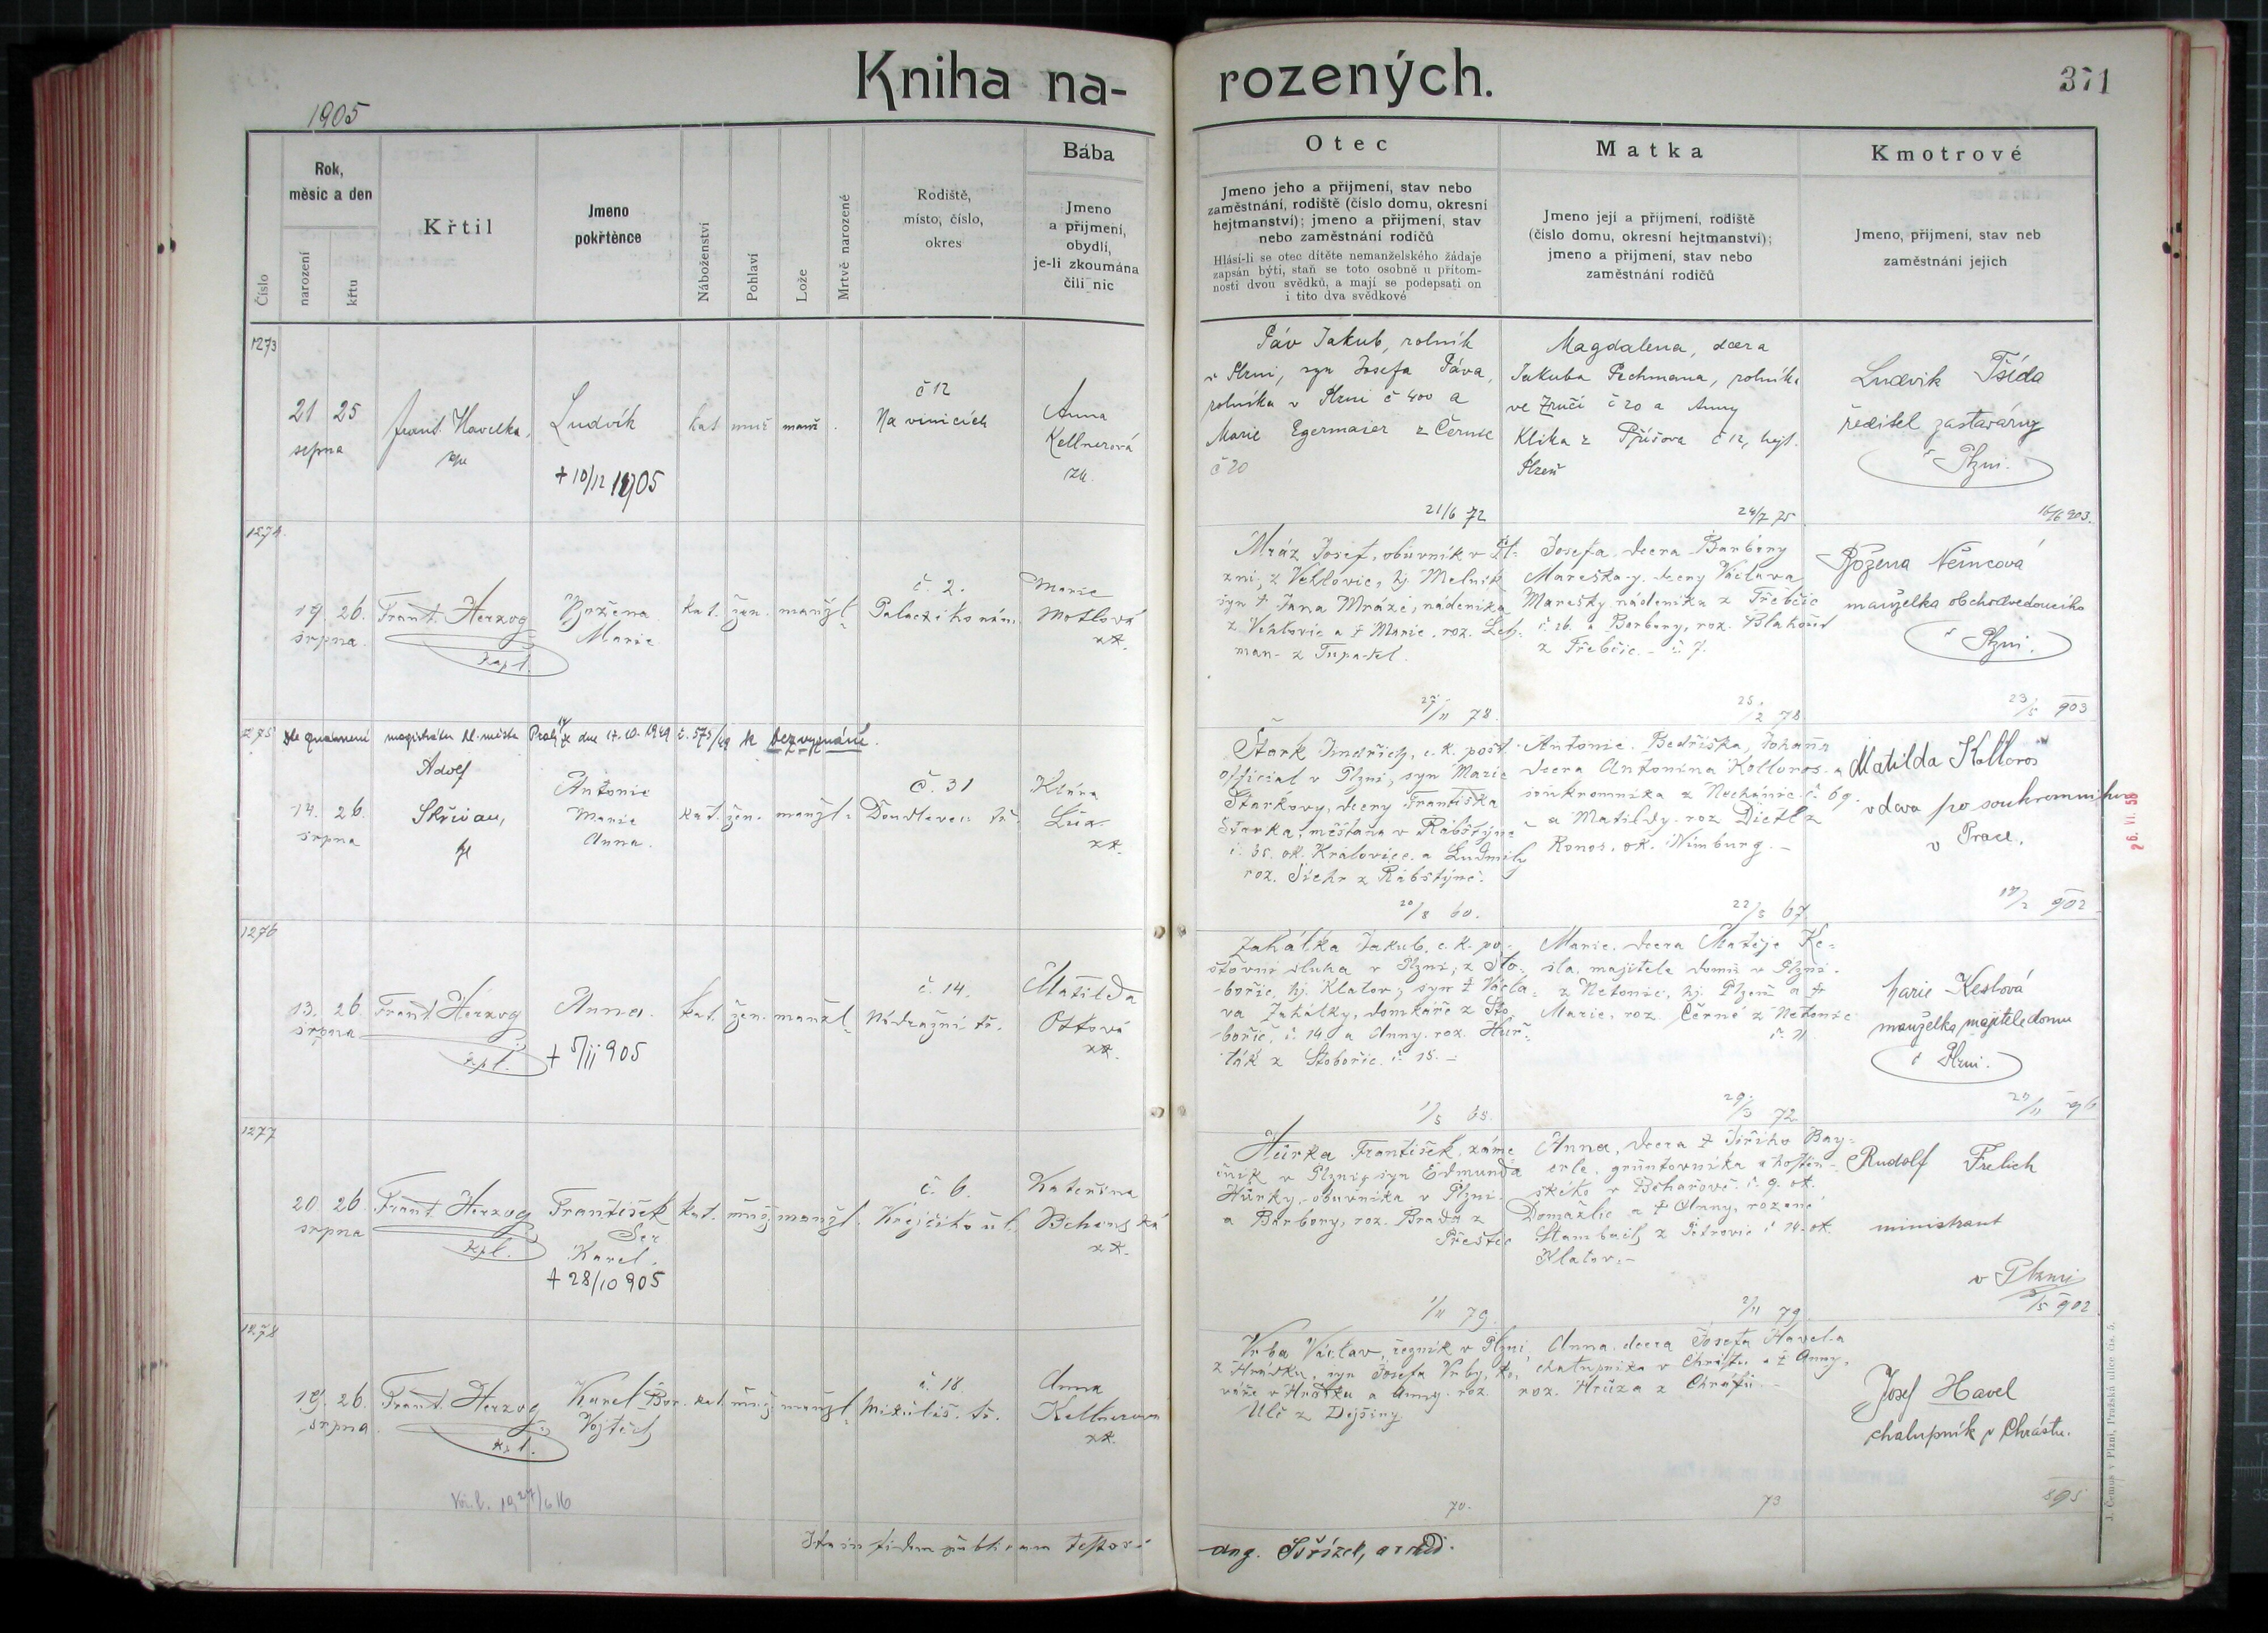 Kniha na-
rozených.
371
1905
Číslo
Rok,
měsíc a den
narození
křtu
Křtil
Jmeno
pokřtěnce
Náboženství
Pohlaví
Lože
Mrtvě narozené
Rodiště,
místo, číslo,
okres
Bába
Jmeno
a příjmení,
obydlí,
je-li zkoumána
čili nic
Otec
Jmeno jeho a příjmení, stav nebo
zaměstnání, rodiště (číslo domu, okresní
hejtmanství); jmeno a příjmení, stav
nebo zaměstnání rodičů
Hlásí-li se otec dítěte nemanželského žádaje
zapsán býti, staň se toto osobně u přítom-
nosti dvou svědků, a mají se podepsati on
i tito dva svědkové
Matka
Jmeno její a příjmení, rodiště
(číslo domu, okresní hejtmanství);
jmeno a příjmení, stav nebo
zaměstnání rodičů
Kmotrové
Jmeno, příjmení, stav neb
zaměstnání jejich
1273
21 25
srpna
Frant. Havelka,
Ludvík
+ 10/12 1905
kat muž manž.
č 12
Na vinicích
Anna
Kellnerová
zk.
Páv Jakub, rolník
v Plzni, syn Josefa Páva,
rolníka v Plzni č 400 a
Marie Egermaier z Černic
č 20
21/6 72
Magdalena, dcera
Jakuba Pechmana, rolníka
ve Zruči č 20 a Anny
Klika z Příšova č 12, hejt.
Plzeň
24/7 75
Ludvik Tšída
ředitel zastavárny
v Plzni.
16/6 903.
1274.
19. 26.
srpna.
Frant. Herzog
kapl.
Božena
Marie
kat. žen. manžl.
č. 2.
Palackého nám.
Marie
Motlová
zk.
Mráz Josef, obuvník v Pl-
zni, z Vehlovic, hj. Melník
syn † Jana Mráze, nádeníka
z Vehlovic a † Marie, roz. Leh-
man- z Tupadel.
27/11 78.
Josefa, dcera Barbory
Mareška-y, dcery Václava
Marešky, nádeníka z Třebčic
č. 26. a Barbory, roz. Blahout
z Třebčic. - č 7.
25/2 78
Božena Němcová
manželka obchodvedoucího
v Plzni.
23/5 903
1275
Dle oznámení magistrátu hl. města Prahy ze dne 17.10.1949 č. 573/49 je bez vyznání.
14. 26.
srpna
Adolf
Skřivan,
Antonie
Marie
Anna.
kat. žen. manžl.
č. 31
Doudlevec. tř.
Klára
zk.
Štark Jindřich, c. k. pošt.
official v Plzni, syn Marie
Štarkovy, dcery Františka
Štarka, měšťana v Rabštýně
č. 35. ok. Kralovice. a Ludmily
roz. Šichr z Rabštýně.
20/8 60.
Antonie, Bedřiška, Johana
dcera Antonína Kolloros-a
soukromníka z Nechanic. č. 69.
a Matildy. roz Dietl z
Ronov, ok. Nimburg.-
22/5 67
Matilda Kolloros
vdova po soukromníku
v Praze.
17/2 902
26. VI. 58
1276
13. 26.
srpna
Frant. Herzog
kpl.
Anna.
+ 5/11 905
kat. žen. manžl.
č. 14.
Nádražní tř.
Matilda
Ottová
zk.
Zahálka Jakub, c. k. po-
štovní sluha v Plzni, z Sto-
bořic, hj. Klatov, syn † Václa-
va Zahálky, domkáře z Sto-
bořic, č. 14. a Anny, roz. Huř-
ták z Stobořic. č. 15.-
1/5 65.
Marie, dcera Matěje Ke-
sla, majitele domu v Plzni.
z Netonic, hj. Plzeň a †
Marie, roz. Černé z Netonic
č. 11.
29/3 72
Marie Keslová
manželka majitele domu
v Plzni.
27/11 96
1277
20. 26.
srpna
Frant. Herzog
kpl.
František
Ser
Karel.
+ 28/10 905
kat. muž. manžl.
č. 6.
Krejčího ul.
Kateřina
zk.
Hůrka František, záme-
čník v Plzni, syn Edmunda
Hůrky, obuvníka v Plzni
a Barbory, roz. Brada z
Přeštic
1/11 79.
Anna, dcera † Jiřího Bay-
erle, gruntovníka a hostin-
ského v Běhařově. č. 9. ok.
Domažlic a † Anny, rozené
Stambach z Petrovic č 14. ok.
Klatov.-
2/11 79
Rudolf Frelich
ministrant
v Plzni
/5 902
1278
19. 26.
srpna.
Frant. Herzog
kpl.
Karel Bor.
Vojtěch
kat. muž. manžl.
č. 18.
Mikuláš. tř.
Anna
Kellnerova
zk.
Vrba Václav, řezník v Plzni,
z Hrádku, syn Josefa Vrby, ko-
váře v Hrádku a Anny roz.
Ulč z Dejšiny
70.
Anna, dcera Josefa Havel-a
chalupníka v Chrástu a † Anny,
roz. Hrůza z Chrástu.-
73
Josef Havel
chalupník v Chrástu.
895
Ita in fidem publicam testor:
Aug. Střízek, arciděk.
J. Černov v Plzni, Pražská ulice čís. 5.